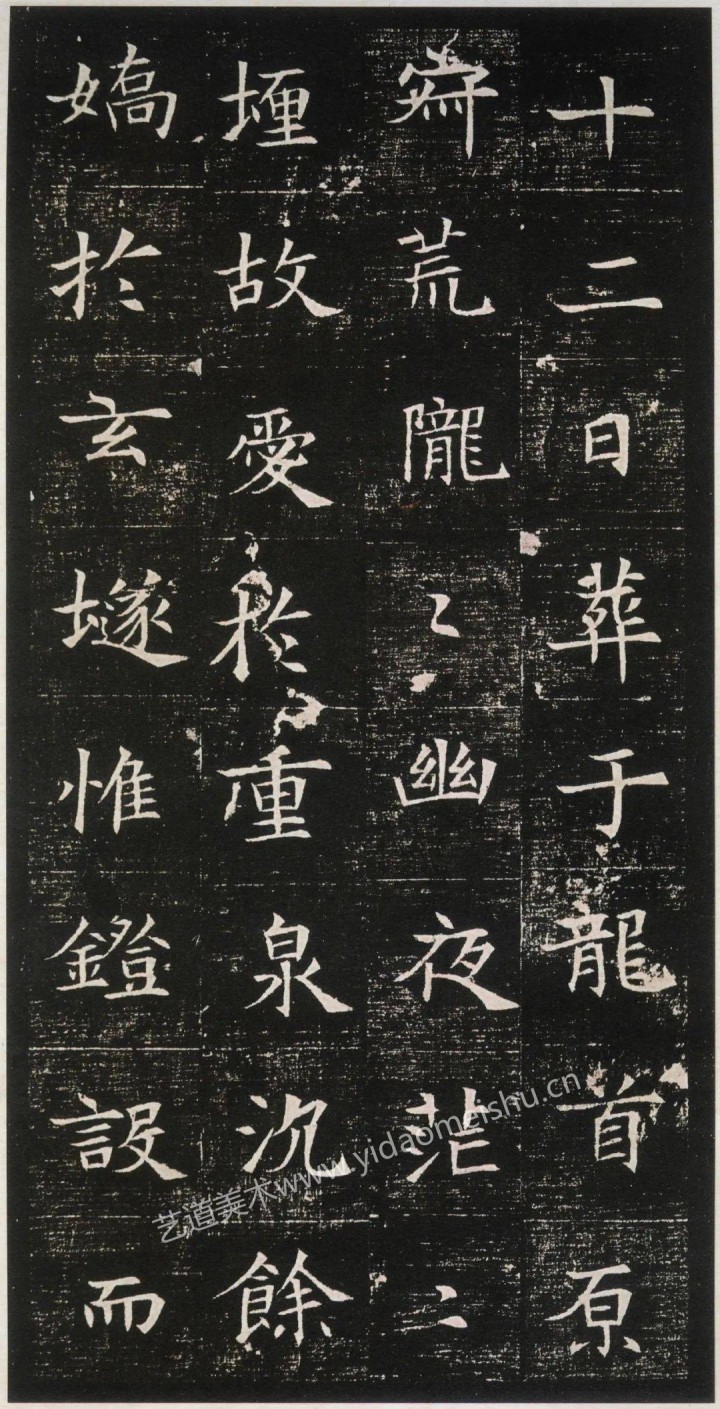 十二日葬于龍首原
荒隴〻幽夜茫〻
堙故愛於重泉沉餘
嬌於玄㙸惟鐙設而
艺道美术www.yidaomeishu.cn